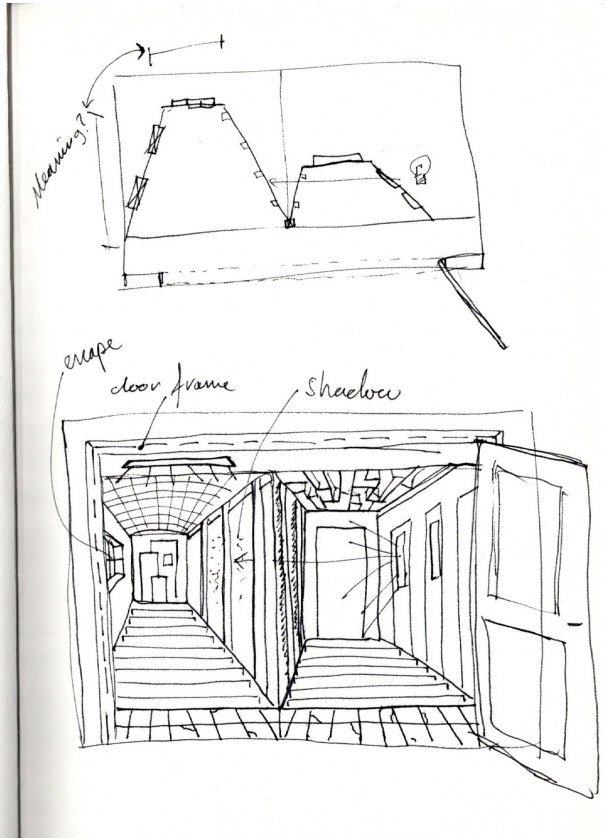 Meaning?
escape
door frame
shadow